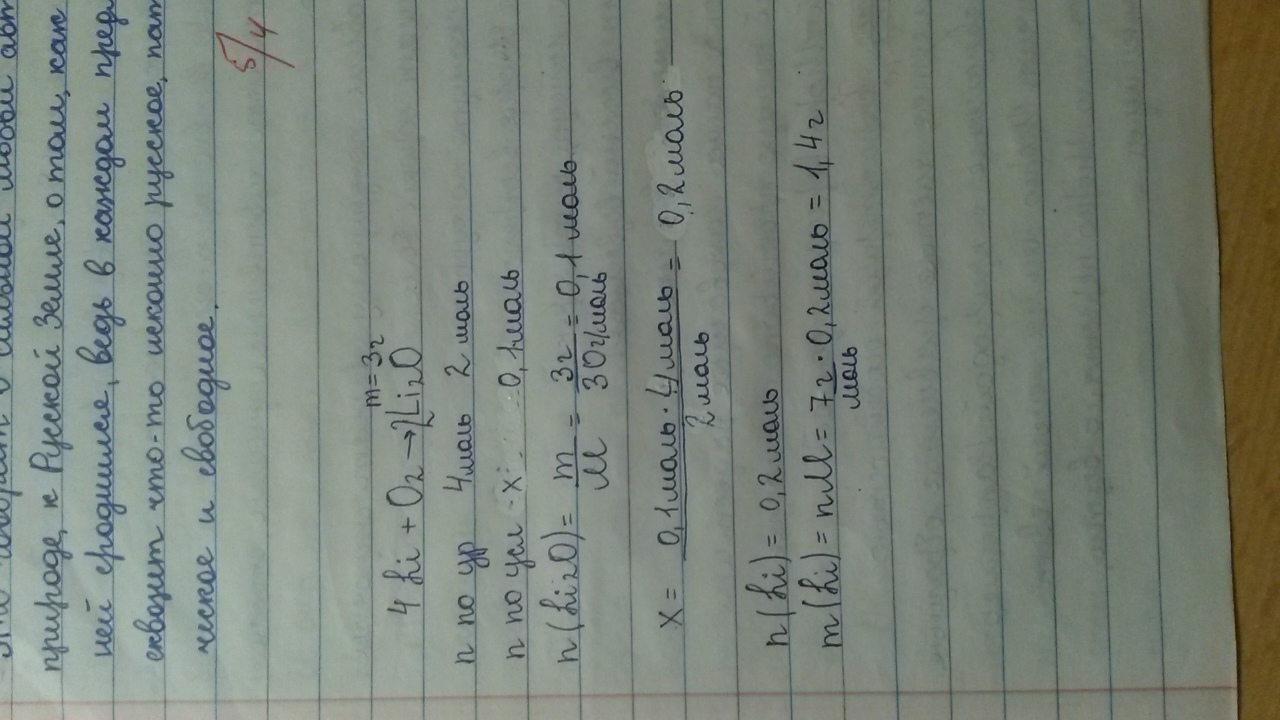 природе, к Русской Земле, о том, как
ней сроднился, ведь в каждом пред
сквозит что-то исконно русское, пат
ческое и свободное.
5/4
m=3г
4Li + O₂ → 2Li₂O
n по ур 4моль 2 моль
n по усл x 0,1моль
n(Li₂O) = m/M = 3г/30г/моль = 0,1 моль
x = 0,1моль · 4моль / 2 моль = 0,2моль
n(Li) = 0,2моль
m(Li) = nM = 7г/моль · 0,2моль = 1,4г